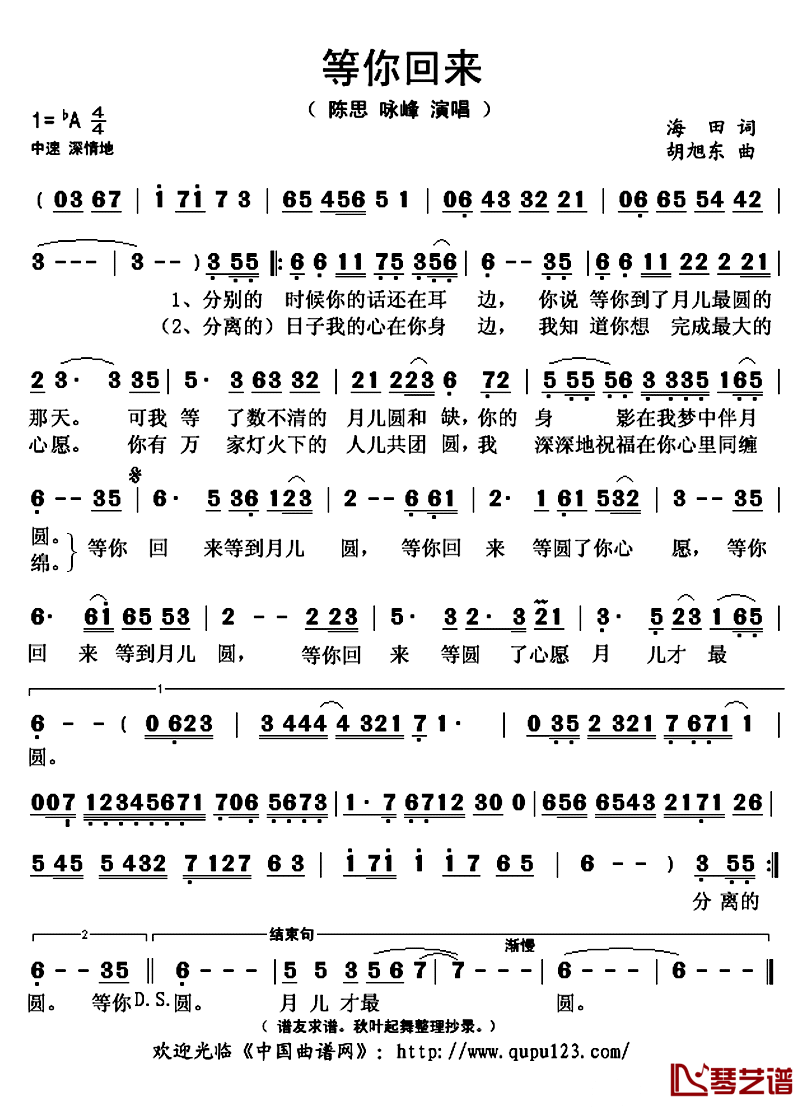 等你回来
( 陈思 咏峰 演唱 )
1= ♭A 4/4
海 田 词
中速 深情地
胡旭东 曲
( 03 67 | i 7i 7 3 | 65 456 5 1 | 06 43 32 21 | 06 65 54 42 |
3 - - - | 3 - - ) 3 55 ‖: 6 6 11 75 356 | 6 - - 35 | 6 6 11 22 2 21 |
1、分别的 时候你的话还在耳 边， 你说 等你到了月儿最圆的
（2、分离的）日子我的心在你身 边， 我知 道你想 完成最大的
2 3· 3 35 | 5· 3 63 32 | 21 223 6 72 | 5 55 56 3 335 165 |
那天。 可我 等 了数不清的 月儿圆和 缺，你的 身 影在我梦中伴月
心愿。 你有 万 家灯火下的 人儿共团 圆，我 深深地祝福在你心里同缠
6 - - 35 | 6· 5 36 123 | 2 - - 6 61 | 2· 1 61 532 | 3 - - 35 |
圆。
绵。 } 等你 回 来等到月儿 圆， 等你回 来 等圆了你心 愿，等你
6· 6i 65 53 | 2 - - 2 23 | 5· 3 2· 3 21 | 3· 5 23 165 |
回 来 等到月儿 圆， 等你回 来 等圆 了心愿 月 儿才 最
1
6 - - ( 0 623 | 3 444 4 321 7 1· | 0 35 2 321 7 671 1 |
圆。
007 12345671 706 5673 | 1· 7 6712 30 0 | 656 6543 2171 26 |
5 45 5 432 7 127 6 3 | i 17i i i7 65 | 6 - - ) 3 55 :‖
分 离的
2 结束句 渐慢
6 - - 35 ‖ 6 - - | 5 5 3 567 7 - | 7 - - 6 - - | 6 - - - ‖
圆。 等你 D.S. 圆。 月 儿 才最 圆。
（ 谱友求谱。秋叶起舞整理抄录。）
欢迎光临《中国曲谱网》: http://www.qupu123.com/
琴艺谱